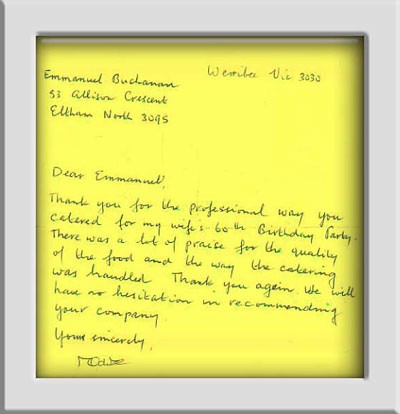 Werribee Vic 3030
Emmanuel Buchanan
53 Allison Crescent
Eltham North 3095
Dear Emmanuel,
Thank you for the professional way you
catered for my wife's 60th Birthday Party.
There was a lot of praise for the quality
of the food and the way the catering
was handled. Thank you again. We will
have no hesitation in recommending
your company.
Yours sincerely,